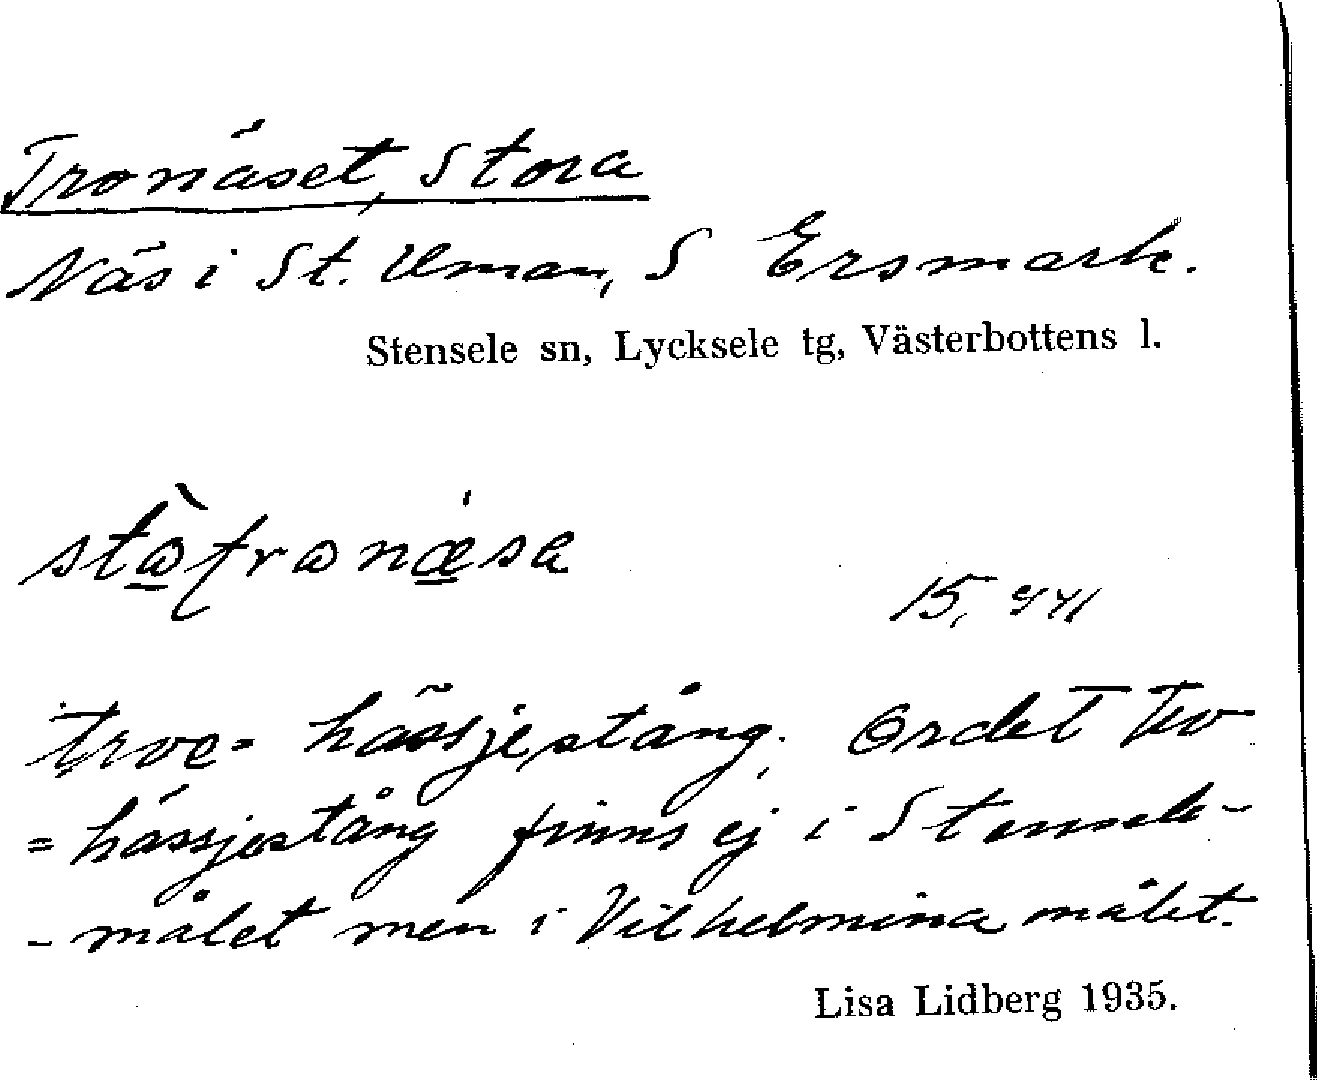 Tronäset, Stora
Näs i St. Uman, S Ersmark.
Stensele sn, Lycksele tg, Västerbottens l.
15, 441
troe = hässjestång. Ordet tro
= hässjestång finns ej i Stensele-
- målet men i Vilhelmina målet.
Lisa Lidberg 1935.